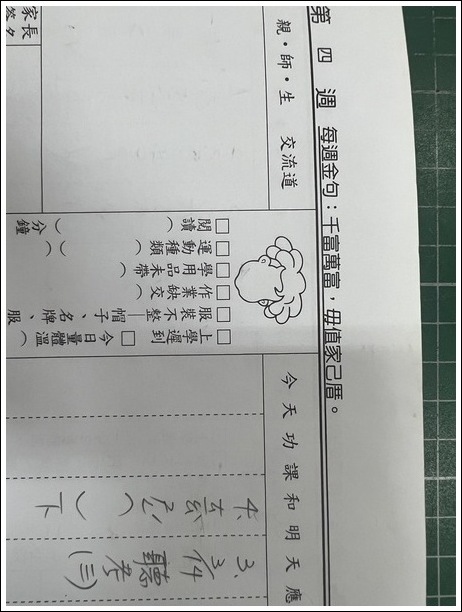 第四週 每週金句：千富萬富，毋值家己厝。
親‧師‧生 交流道
今天功課和明天應
家長
□閱讀（ ）分鐘
□運動種類（ ）
□學用品未帶（
□作業缺交（
□服裝不整—帽子、名牌、服
□上學遲到
□今日量體溫（
3、
聽考(三)
4、
（ ）下